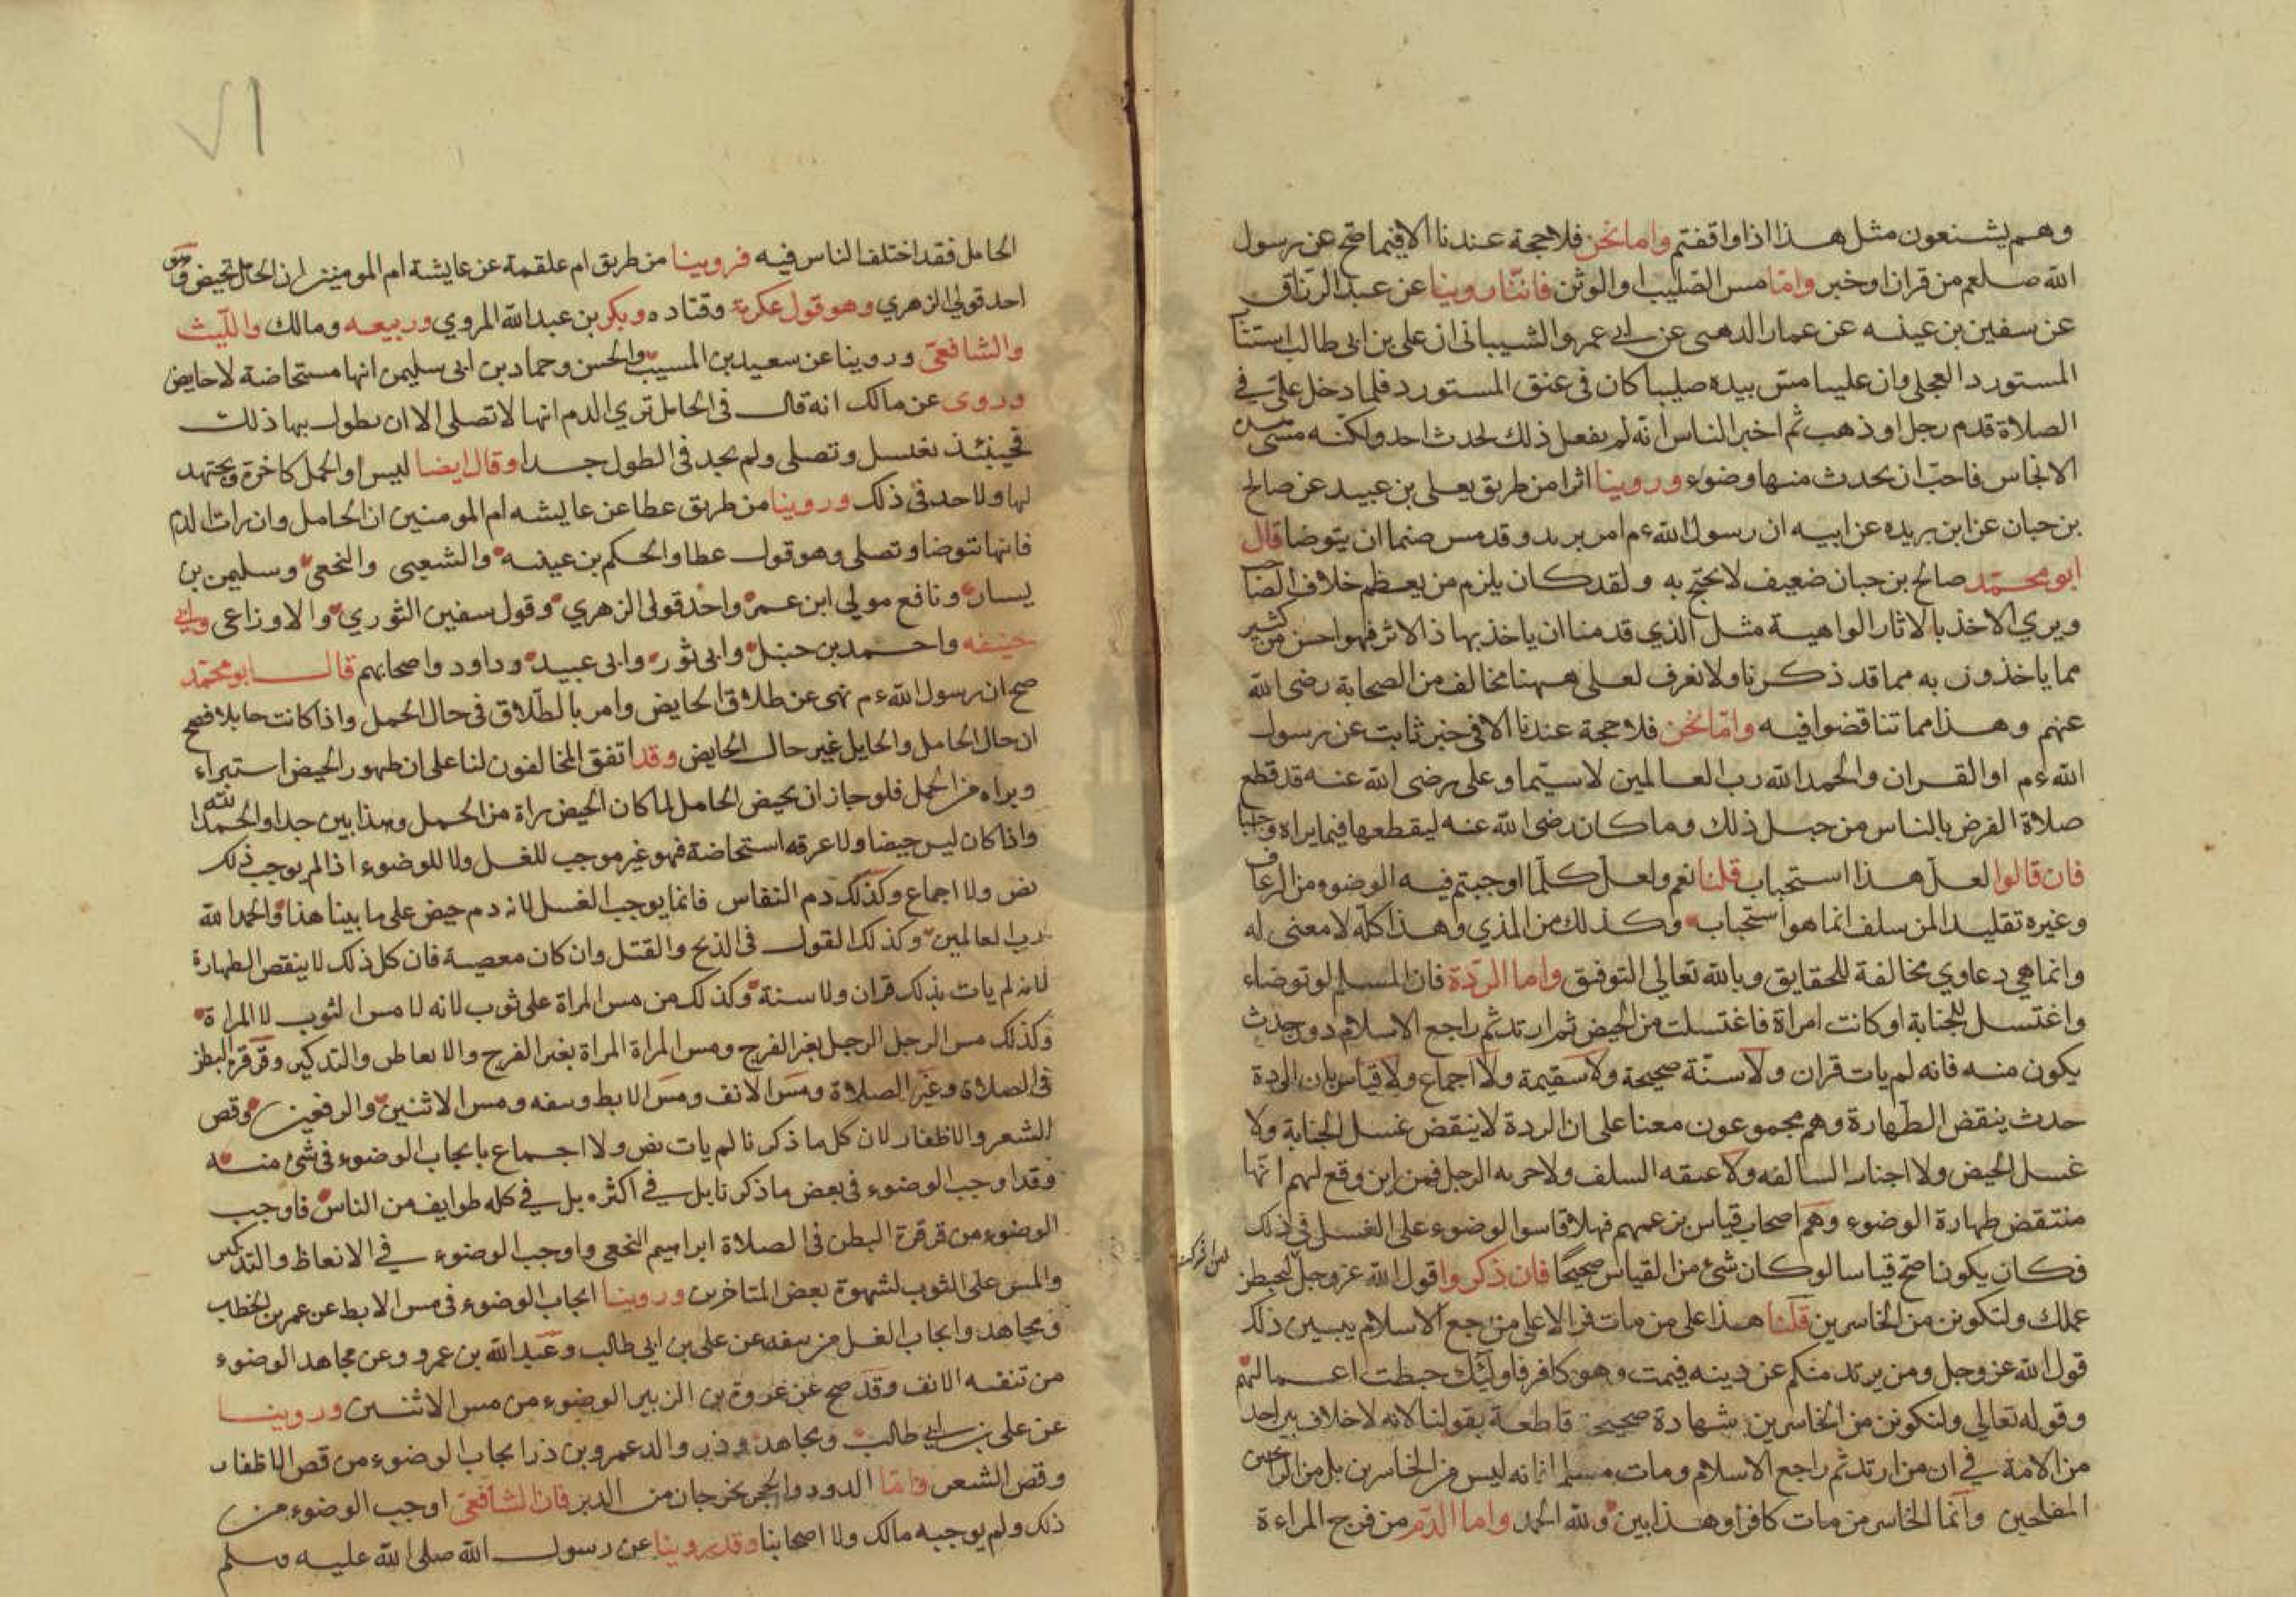 وهم يشنعون مثل هذا اذا وافقتم واما نحن فلا حجة عندنا الا فيما صح عن رسول
الله صلعم من قران او خبر واما مس الصليب او الوثن فاننا روينا عن عبد الرزاق
عن سفين بن عينه عن عمار الدهنى عن ابي عمرو الشيبانى ان على بن ابى طالب استتا
المستورد العجلى وان عليا مس بيده صليبا كان فى عنق المستورد فلما دخل على في
الصلاة قدم رجلا وذهب ثم اخبر الناس انه لم يفعل ذلك لحدث احد ولكنه مس
الانجاس فاحب ان يحدث منها وضوء وروينا اثرا من طريق يعلى بن عبيد عن صالح
بن حبان عن ابن بريده عن ابيه ان رسول الله ءم امر بريد وقد مس صنما ان يتوضا قال
ابو محمد صالح بن حبان ضعيف لا يحتج به ولقد كان يلزم من يعظم خلاف الصا
ويري الاخذ بالاثار الواهية مثل الذي قدمنا ان ياخذ بهاذا الاثر فهو احسن من كثير
مما ياخذون به مما قد ذكرنا ولا نعرف لعلى ههنا مخالف من الصحابة رضى الله
عنهم وهذا مما تناقضوا فيه واما نحن فلا حجة عندنا الا فى خبر ثابت عن رسول
الله ءم او القران والحمد الله رب العالمين لا سيما وعلى رضى الله عنه قد قطع
صلاة الفرض بالناس من جبل ذلك وما كان رضى الله عنه ليقطعها فيما يراه وجبا
فان قالوا لعل هذا استحباب قلنا نعم ولعل كلما اوجبتم فيه الوضوء من الرعاف
وغيره تقليدا لمن سلف انما هو استحباب وكذلك من المذي وهذا كله لا معنى له
وانما هي دعاوي مخالفة للحقايق وبالله تعالي التوفيق واما الردة فان المسلم لو توضاء
واغتسل للجنابة او كانت امراة فاغتسلت من الحيض ثم ارتد ثم راجع الاسلام دون حدث
يكون منه فانه لم يات قران ولا سنة صحيحة ولا سقيمة ولا اجماع ولا قياس بان الردة
حدث ينقض الطهارة وهم مجموعون معنا على ان الردة لا ينقض غسل الجنابة ولا
غسل الحيض ولا اجناسه السالفه ولا عتقه السلف ولا حربه الرجل فمن اين وقع لهم انها
منتقض طهارة الوضوء وهم اصحاب قياس بزعمهم فهلا قاسوا الوضوء على الغسل فى ذلك
فكان يكون اصح قياسا لو كان شئ من القياس صحيحا فان ذكروا قول الله عز وجل ليحبطن
عملك ولتكونن من الخاسرين قلنا هذا على من مات كافرا لا على من رجع الاسلام يبين ذلك
قول الله عز وجل ومن يرتد منكم عن دينه فيمت وهو كافر فاوليك حبطت اعمالهم
وقوله تعالي ولتكونن من الخاسرين شهادة صحيحة قاطعة بقولنا لانه لا خلاف بين احد
من الامة في ان من ارتد ثم راجع الاسلام ومات مسلما انه ليس من الخاسرين بل من الرابحين
المفلحين وانما الخاسر من مات كافرا وهذا بين ولله الحمد واما الدم من فرج المراءة
الحامل فقد اختلف الناس فيه فروينا من طريق ام علقمة عن عايشة ام المومنين ان الحامل تحيض وهو
احد قولي الزهري وهو قول عكرمة وقتاده وبكر بن عبد الله المروي وربيعه ومالك والليث
والشافعى وروينا عن سعيد بن المسيب والحسن وحماد بن ابى سليمن انها مستحاضة لا حايض
وروى عن مالك انه قال فى الحامل تري الدم انها لا تصلى الا ان يطول بها ذلك
فحينئذ تغتسل وتصلى ولم يحد فى الطول حدا وقال ايضا ليس اول الحمل كاخره ويجتهد
لها ولا حد فى ذلك وروينا من طريق عطا عن عايشه ام المومنين ان الحامل وان رات الدم
فانها تتوضا وتصلى وهو قول عطا والحكم بن عينه والشعبى والنخعى وسليمن بن
يسار ونافع مولي ابن عمر واحد قولى الزهري وقول سفين الثوري والاوزاعى وابي
حنيفه واحمد بن حنبل وابى ثور وابى عبيد وداود واصحابهم قال ابو محمد
صح ان رسول الله ءم نهى عن طلاق الحايض وامر بالطلاق فى حال الحمل واذا كانت حايلا فصح
ان حال الحامل والحايل غير حال الحايض وقد اتفق المخالفون لنا على ان ظهور الحيض استبراء
وبراه من الحمل فلو جاز ان يحيض الحامل لما كان الحيض براة من الحمل وهذا بين جدا والحمد لله
واذا كان ليس حيضا ولا عرقه استحاضة فهو غير موجب للغسل ولا للوضوء اذا لم يوجب ذلك
نص ولا اجماع وكذلك دم النفاس فانما يوجب الغسل لانه دم حيض على ما بينا هذا والحمد الله
رب العالمين وكذلك القول فى الذبح والقتل وان كان معصية فان كل ذلك لا ينقص الطهارة
لانه لم يات بذلك قران ولا سنة وكذلك من مس المراة على ثوب لانه لا مس الثوب لا المراة
وكذلك مس الرجل الرجل بغير الفرج ومس المراة المراة بغير الفرج والانعاظ والتذكير وقرقرة البطن
فى الصلاة وغير الصلاة ومس الانف ومس الابط ونتفه ومس الانثيين والرفغين وقص
الشعر والاظفار لان كل ما ذكرنا لم يات نص ولا اجماع بايجاب الوضوء فى شئ منه
وقد اوجب الوضوء فى بعض ما ذكرنا بل في اكثره بل في كله طوايف من الناس فاوجب
الوضوء من قرقرة البطن فى الصلاة ابراهيم النخعى واوجب الوضوء في الانعاظ والتذكير
والمس على الثوب لشهوة بعض المتاخرين وروينا ايجاب الوضوء فى مس الابط عن عمر بن الخطاب
ومجاهد وايجاب الغسل من نتفه عن على بن ابى طالب وعبد الله بن عمرو وعن مجاهد الوضوء
من تنقيه الانف وقد صح عن عروة بن الزبير الوضوء من مس الانثيين وروينا
عن على بن ابي طالب ومجاهد وذر والد عمرو بن ذر ايجاب الوضوء من قص الاظفار
وقص الشعر واما الدود والحجر يخرجان من الدبر فان الشافعى اوجب الوضوء من
ذلك ولم يوجبه مالك ولا اصحابنا وقد روينا عن رسول الله صلى الله عليه وسلم